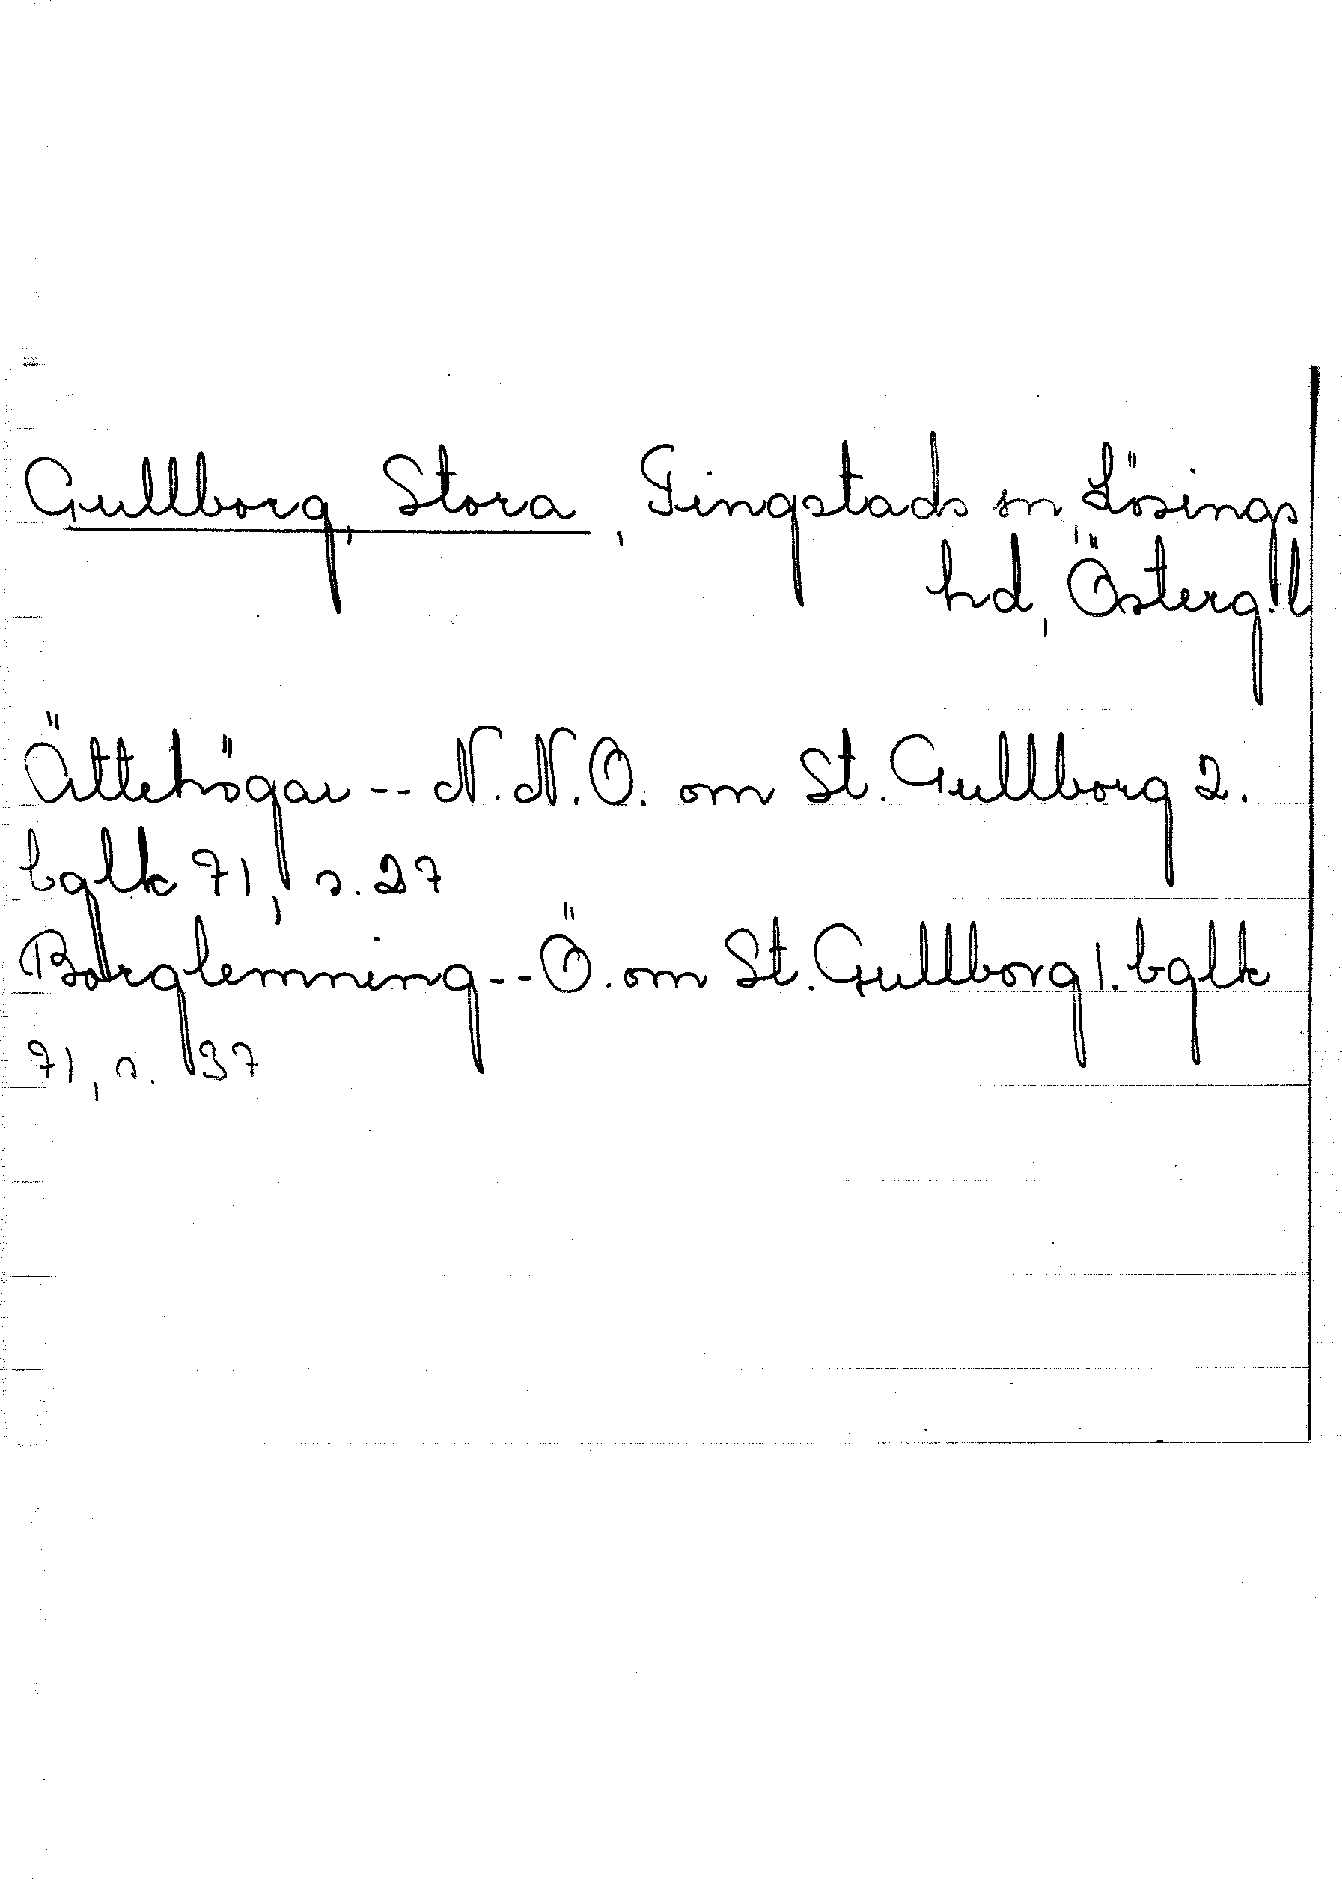 Gullborg, Stora, Tingstads sn, Lösings
hd, Österg. l
Ättehögar -- N.N.O. om St. Gullborg 2.
bglk 71, s. 27
Borglemning -- Ö. om St. Gullborg 1. bglk
71, s. 37